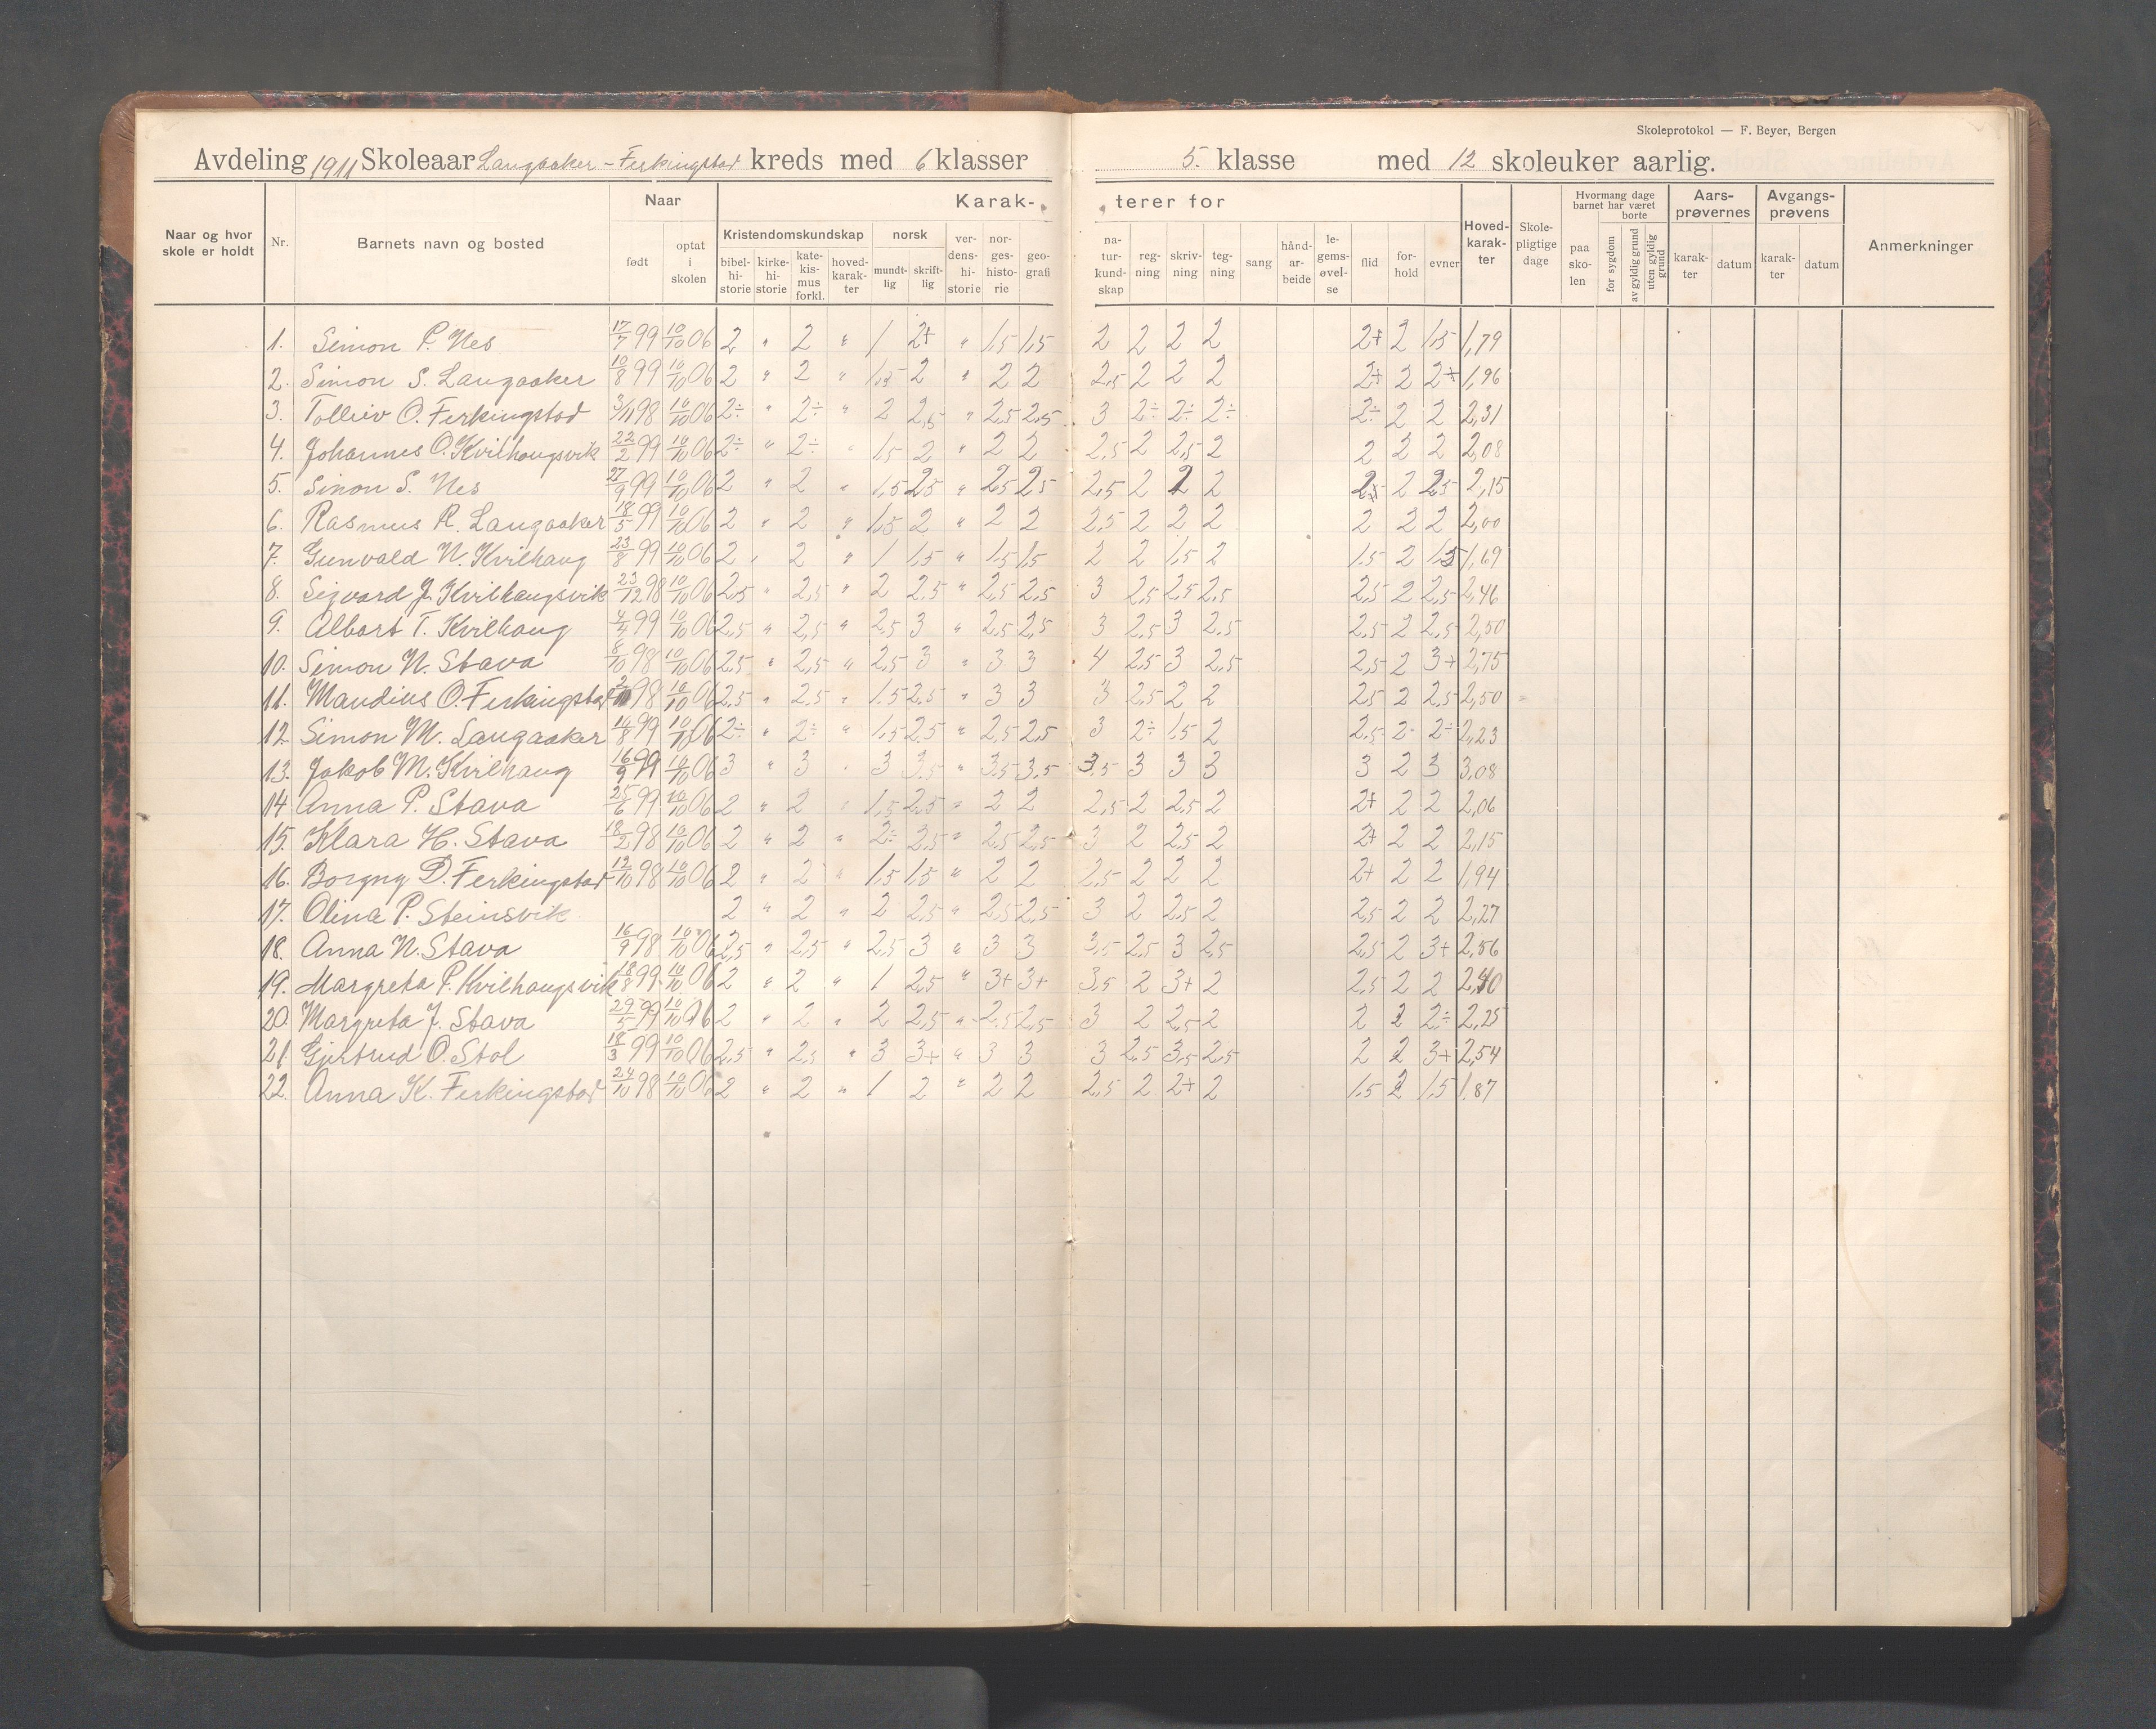 Skoleprotokol — F. Beyer, Bergen
Avdeling 1911 Skoleaar Langaaker - Ferkingstad kreds med 6 klasser 5. klasse med 12 skoleuker aarlig.
Naar og hvor skole er holdt Nr. Barnets navn og bosted Naar født optat i skolen Karakterer for Kristendomskundskap bibelhistorie kirkehistorie katekismus forkl. hovedkarakter norsk mundtlig skriftlig verdenshistorie norgeshistorie geografi naturkundskap regning skrivning tegning sang håndarbeide legemsøvelse flid forhold evner Hovedkarakter Skolepligtige dage Hvormang dage barnet har været paa skolen borte for sygdom av gyldig grund uten gyldig grund Aarsprøvernes karakter datum Avgangsprøvens karakter datum Anmerkninger
1. Simon P. Nes 17/7 99 10/10 06 2 " 2 " 1 2+ " 1,5 1,5 2 2 2 2 2+ 2 1,5 1,79
2. Simon S. Langaaker 10/8 99 10/10 06 2 " 2 " 1,5 2 " 2 2 2,5 2 2 2 2+ 2 2+ 1,96
3. Tolleiv O. Ferkingstad 3/11 98 10/10 06 2÷ " 2÷ " 2 2,5 " 2,5 2,5 3 2÷ 2÷ 2÷ 2÷ 2 2 2,31
4. Johannes O. Kvilhaugsvik 22/2 99 10/10 06 2÷ " 2÷ " 1,5 2 " 2 2 2,5 2 2,5 2 2 2 2 2,08
5. Simon S. Nes 27/9 99 10/10 06 2 " 2 " 1,5 2,5 " 2,5 2,5 2,5 2 2 2 2+ 2 2,5 2,15
6. Rasmus R. Langaaker 18/5 99 10/10 06 2 " 2 " 1,5 2 " 2 2 2,5 2 2 2 2 2 2 2,00
7. Gunvald N. Kvilhaug 23/8 99 10/10 06 2 " 2 " 1 1,5 " 1,5 1,5 2 2 1,5 2 1,5 2 1,5 1,69
8. Sigvard J. Kvilhaugsvik 23/12 98 10/10 06 2,5 " 2,5 " 2 2,5 " 2,5 2,5 3 2,5 2,5 2,5 2,5 2 2,5 2,46
9. Albert T. Kvilhaug 4/4 99 10/10 06 2,5 " 2,5 " 2,5 3 " 2,5 2,5 3 2,5 3 2,5 2,5 2 2,5 2,50
10. Simon N. Stava 8/10 98 10/10 06 2,5 " 2,5 " 2,5 3 " 3 3 4 2,5 3 2,5 2,5 2 3+ 2,75
11. Maudius O. Ferkingstad 98 10/10 06 2,5 " 2,5 " 1,5 2,5 " 3 3 3 2,5 2 2 2,5 2 2,5 2,50
12. Simon M. Langaaker 14/8 99 10/10 06 2÷ " 2÷ " 1,5 2,5 " 2,5 2,5 3 2÷ 1,5 2 2,5 2 2÷ 2,23
13. Jakob M. Kvilhaug 16/9 99 10/10 06 3 " 3 " 3 3,5 " 3,5 3,5 3,5 3 3 3 3 2 3 3,08
14. Anna P. Stava 25/6 99 10/10 06 2 " 2 " 1,5 2,5 " 2 2 2,5 2 2,5 2 2+ 2 2 2,06
15. Klara H. Stava 18/2 98 10/10 06 2 " 2 " 2÷ 3,5 " 2,5 2,5 3 2 2,5 2 2+ 2 2 2,15
16. Borgny D. Ferkingstad 12/10 98 10/10 06 2 " 2 " 1,5 1,5 " 2 2 2,5 2 2 2 2+ 2 2 1,94
17. Olina P. Steinsvik 2 " 2 " 2 2,5 " 2,5 2,5 3 2 2,5 2 2,5 2 2 2,27
18. Anna N. Stava 16/9 98 10/10 06 2,5 " 2,5 " 2,5 3 " 3 3 3,5 2,5 3 2,5 2,5 2 3+ 2,56
19. Margreta P. Kvilhaugsvik 18/8 99 10/10 06 2 " 2 " 1 2,5 " 3+ 3+ 3,5 2 3+ 2 2,5 2 2 2,40
20. Margreta J. Stava 29/5 99 10/10 06 2 " 2 " 2 2,5 " 2,5 2,5 3 2 2,5 2 2 2 2÷ 2,25
21. Gjertrud O. Stol 18/3 99 10/10 06 2,5 " 2,5 " 3 3+ " 3 3 3 2,5 3,5 2,5 2 2 3+ 2,54
22. Anna K. Ferkingstad 24/10 98 10/10 06 2 " 2 " 1 2 " 2 2 2,5 2 2+ 2 1,5 2 1,5 1,87